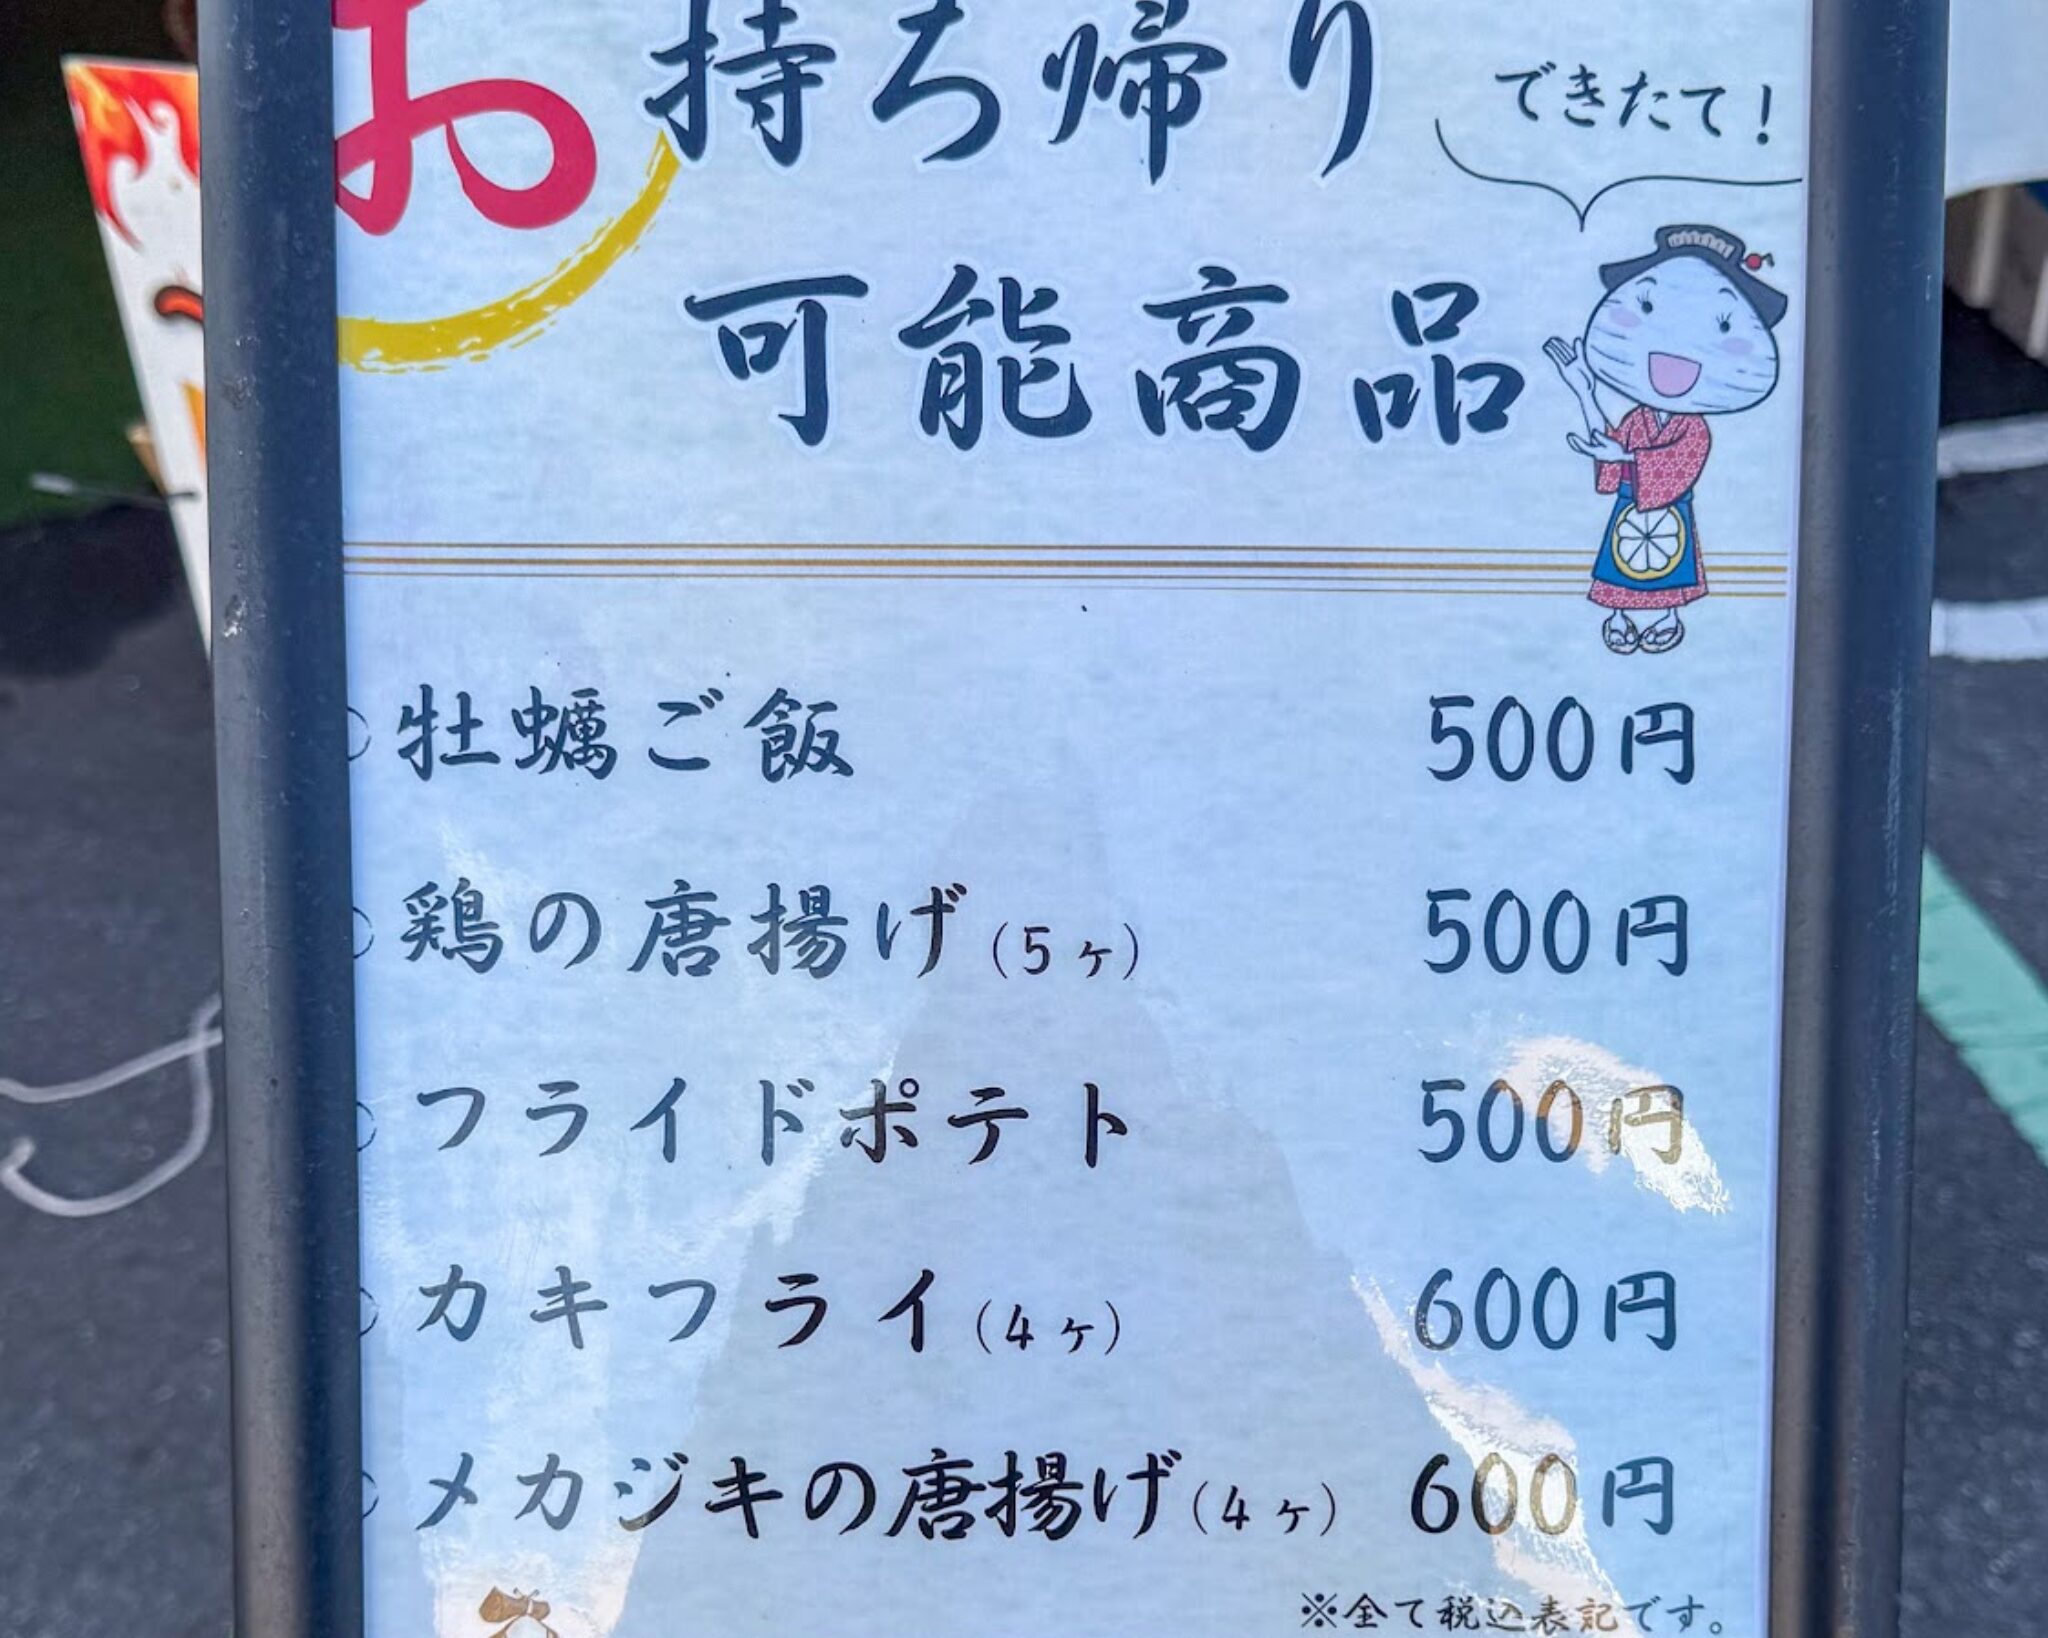 お持ち帰り
できたて！
可能商品
○牡蠣ご飯 500円
○鶏の唐揚げ(5ヶ) 500円
○フライドポテト 500円
○カキフライ(4ヶ) 600円
○メカジキの唐揚げ(4ヶ) 600円
※全て税込表記です。